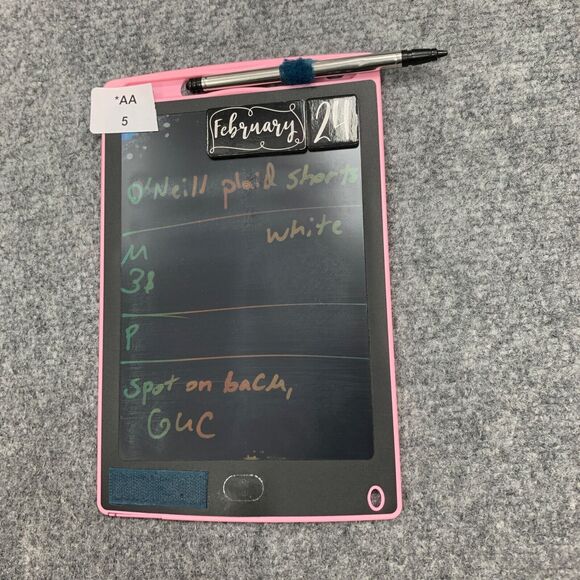 *AA
5
February 24
O'Neill plaid shorts
white
M
38
P
spot on back,
GUC